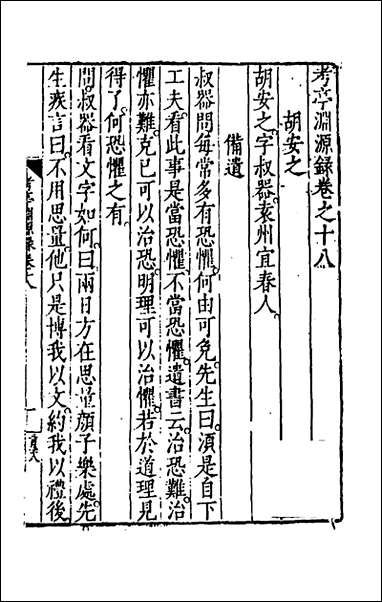 考亭淵源録卷之十八
胡安之
胡安之字叔器袁州宜春人
備遺
叔器問每常多有恐懼何由可免先生曰湏是自下
工夫看此事是當恐懼不當恐懼遺書云治恐難治
懼亦難克已可以治恐明理可以治懼若於道理見
得了何恐懼之有
問叔器看文字如何曰兩日方在思量顏子樂處先
生疾言曰不用思量他只是博我以文約我以禮後
考亭淵源錄卷十八